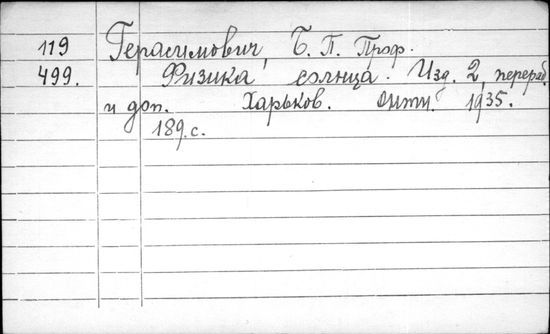 119 Герасимович, Б. П. Проф.
499. Физика солнца. Изд. 2, перераб.
и доп. Харьков. Онти. 1935.
189 с.